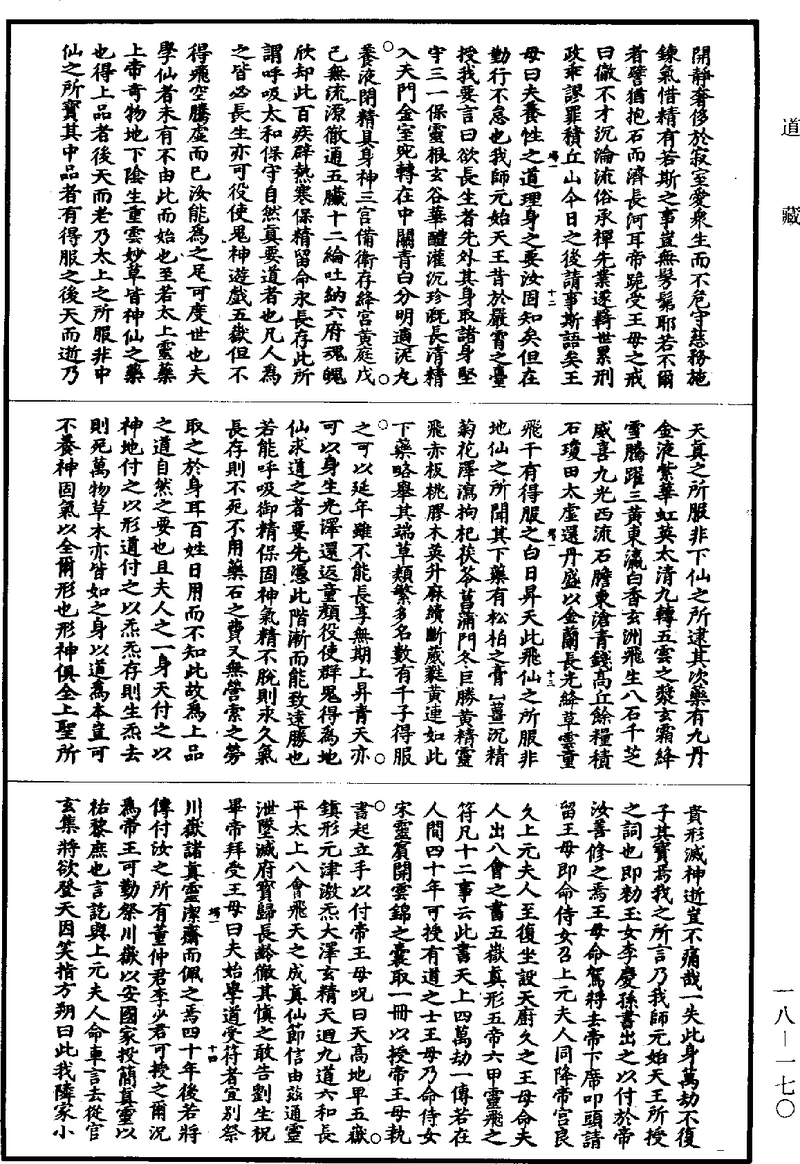 道藏
一八—一七〇
開靜奢侈於寂室愛衆生而不危守慈務施
鍊氣借精有若斯之事豈無髣髴耶若不爾
者譬猶抱石而濟長河耳帝跪受王母之戒
曰徹不才沉淪流俗承禪先業遂羈世累刑
政乖謬罪積丘山今日之後請事斯語矣王
母曰夫養性之道理身之要汝固知矣但在
勤行不怠也我師元始天王昔於嚴霄之臺
授我要言曰欲長生者先外其身取諸身堅
守三一保靈根玄谷華醴灌沉珍溉長清精
入天門金室宛轉在中關青白分明適泥丸
養液閉精具身神三宫備衛存絳宫黄庭戊
己無流源徹通五臟十二綸吐納六府魂魄
欣却此百疾辟熱寒保精留命永長存此所
謂呼吸太和保守自然真要道者也凡人為
之皆必長生亦可役使鬼神遊戲五嶽但不
得飛空騰虚而已汝能為之足可度世也夫
學仙者未有不由此而始也至若太上靈藥
上帝奇物地下陰生重雲妙草皆神仙之藥
也得上品者後天而老乃太上之所服非中
仙之所寶其中品者有得服之後天而逝乃
天真之所服非下仙之所逮其次藥有九丹
金液紫華虹英太清九轉五雲之漿玄霜絳
雪騰躍三黄東瀛白香玄洲飛生八石千芝
威喜九光西流石膽東滄青錢高丘餘糧積
石瓊田太虚還丹盛以金蘭長光絳草雲童
飛千有得服之白日昇天此飛仙之所服非
地仙之所聞其下藥有松柏之膏山薑沉精
菊花澤瀉枸杞茯苓菖蒲門冬巨勝黄精靈
飛赤板桃膠木英升麻續斷葳蕤黄連如此
下藥略舉其端草類繁多名數有千子得服
之可以延年雖不能長享無期上昇青天亦
可以身生光澤還返童顔役使群鬼得為地
仙求道之者要先憑此階漸而能致遠勝也
若能呼吸御精保固神氣精不脱則永久氣
長存則不死不用藥石之費又無營索之勞
取之於身耳百姓日用而不知此故為上品
之道自然之要也且夫人之一身天付之以
神地付之以形道付之以炁炁存則生炁去
則死萬物草木亦皆如之身以道為本豈可
不養神固氣以全爾形也形神俱全上聖所
貴形滅神逝豈不痛哉一失此身萬劫不復
子其寶焉我之所言乃我師元始天王所授
之詞也即勑玉女李慶孫書出之以付於帝
汝善修之焉王母命駕將去帝下席叩頭請
留王母即命侍女召上元夫人同降帝宫良
久上元夫人至復坐設天厨久之王母命夫
人出八會之書五嶽真形五帝六甲靈飛之
符凡十二事云此書天上四萬劫一傳若在
人間四十年可授有道之士王母乃命侍女
宋靈賓開雲錦之囊取一册以授帝王母執
書起立手以付帝王母呪曰天高地卑五嶽
鎮形元津激炁大澤玄精天迴九道六和長
平太上八會飛天之成真仙節信由兹通靈
泄墜滅府寶歸長齡徹其慎之敢告劉生祝
畢帝拜受王母曰夫始學道受符者宜别祭
川嶽諸真靈潔齋而佩之焉四十年後若將
傳付汝之所有董仲君李少君可授之爾況
為帝王可勤祭川嶽以安國家投簡真靈以
祐黎庶也言訖與上元夫人命車言去從官
玄集將欲登天因笑指方朔曰此我隣家小